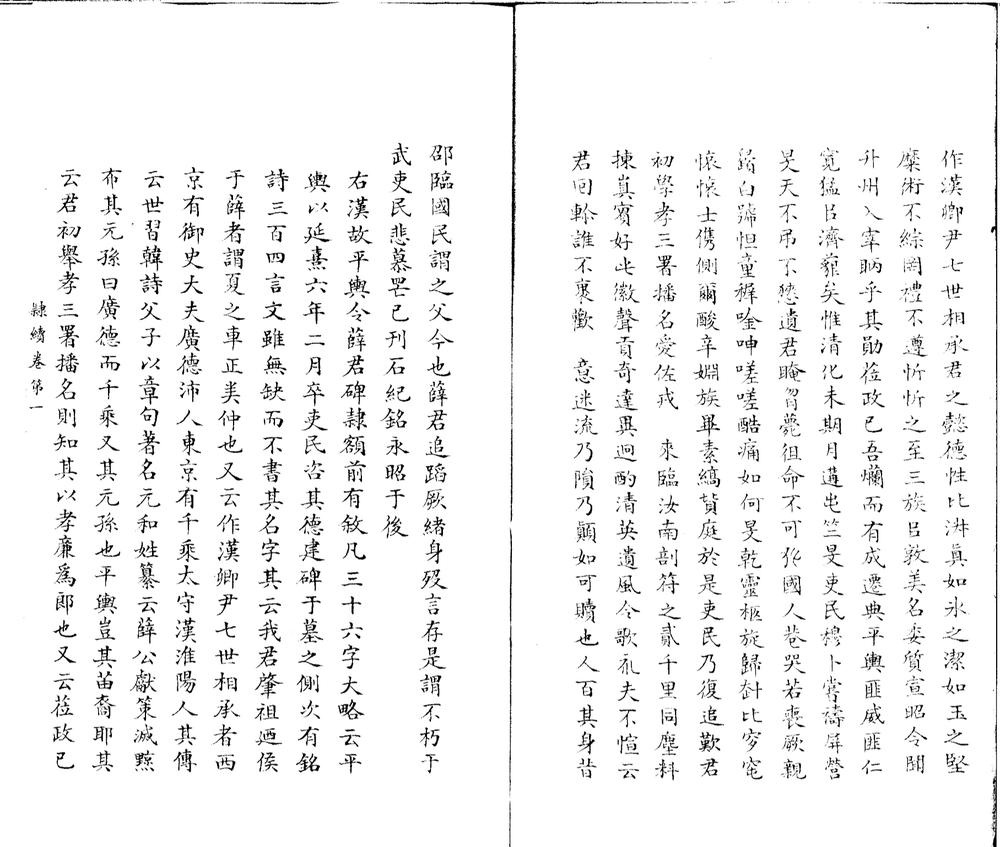 作漢卿尹七世相承君之懿德性比淵真如氷之潔如玉之堅
糜術不綜罔禮不遵忻忻之至三族㠯敦美名委質宣昭令聞
升州入宰眪乎其勛莅政巳吾爛而有成遷典平輿匪威匪仁
寬猛㠯濟雍矣惟清化未期月遘屯竺旻吏民穆卜嘗禱屏營
旻天不弔不憖遺君晻曶薨徂命不可仦國人巷哭若喪厥親
白號怛童穉唫呻嗟嗟酷痛如何旻乾靈柩旋歸比穸窀
懷懷士儁側爾酸辛婣族畢素縞贊庭於是吏民乃復追歎君
初學孝三署播名爰佐戎　來臨汝南剖符之貳千里同塵料
揀真實好此徽聲貢奇達異迥酌清英遺風令歌礼夫不愃云
君回軨誰不褱歡　意迷流乃隕乃顛如可贖也人百其身昔
邵臨國民謂之父今也薛君追蹈厥緒身歿言存是謂不朽于
武吏民悲慕罡己刊石紀銘永昭于後
右漢故平輿令薛君碑隸額前有敘凡三十六字大略云平
輿以延熹六年二月卒吏民咨其德建碑于墓之側次有銘
詩三百四言文雖無缺而不書其名字其云我君肇祖迺侯
于薛者謂夏之車正奚仲也又云作漢卿尹七世相承者西
京有御史大夫廣德沛人東京有千乘太守漢淮陽人其傳
云世習韓詩父子以章句著名元和姓纂云薛公獻策滅黥
布其元孫曰廣德而千乘又其元孫也平輿豈其苗裔耶其
云君初舉孝三署播名則知其以孝廉為郎也又云莅政已
隸續卷第一